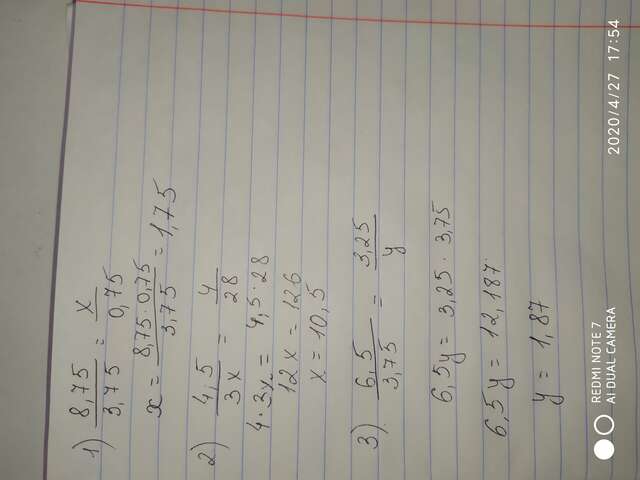 1) 8,75/3,75 = x/0,75
x = 8,75·0,75/3,75 = 1,75
2) 4,5/3x = 4/28
4·3x = 4,5·28
12x = 126
x = 10,5
3) 6,5/3,75 = 3,25/y
6,5y = 3,25 · 3,75
6,5y = 12,187
y = 1,87
REDMI NOTE 7
AI DUAL CAMERA
2020/4/27 17:54